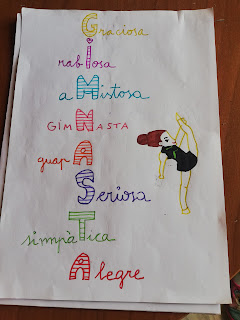 Graciosa
rabIosa
aMistosa
GIMNASTA
guapA
Seriosa
simpàTica
Alegre